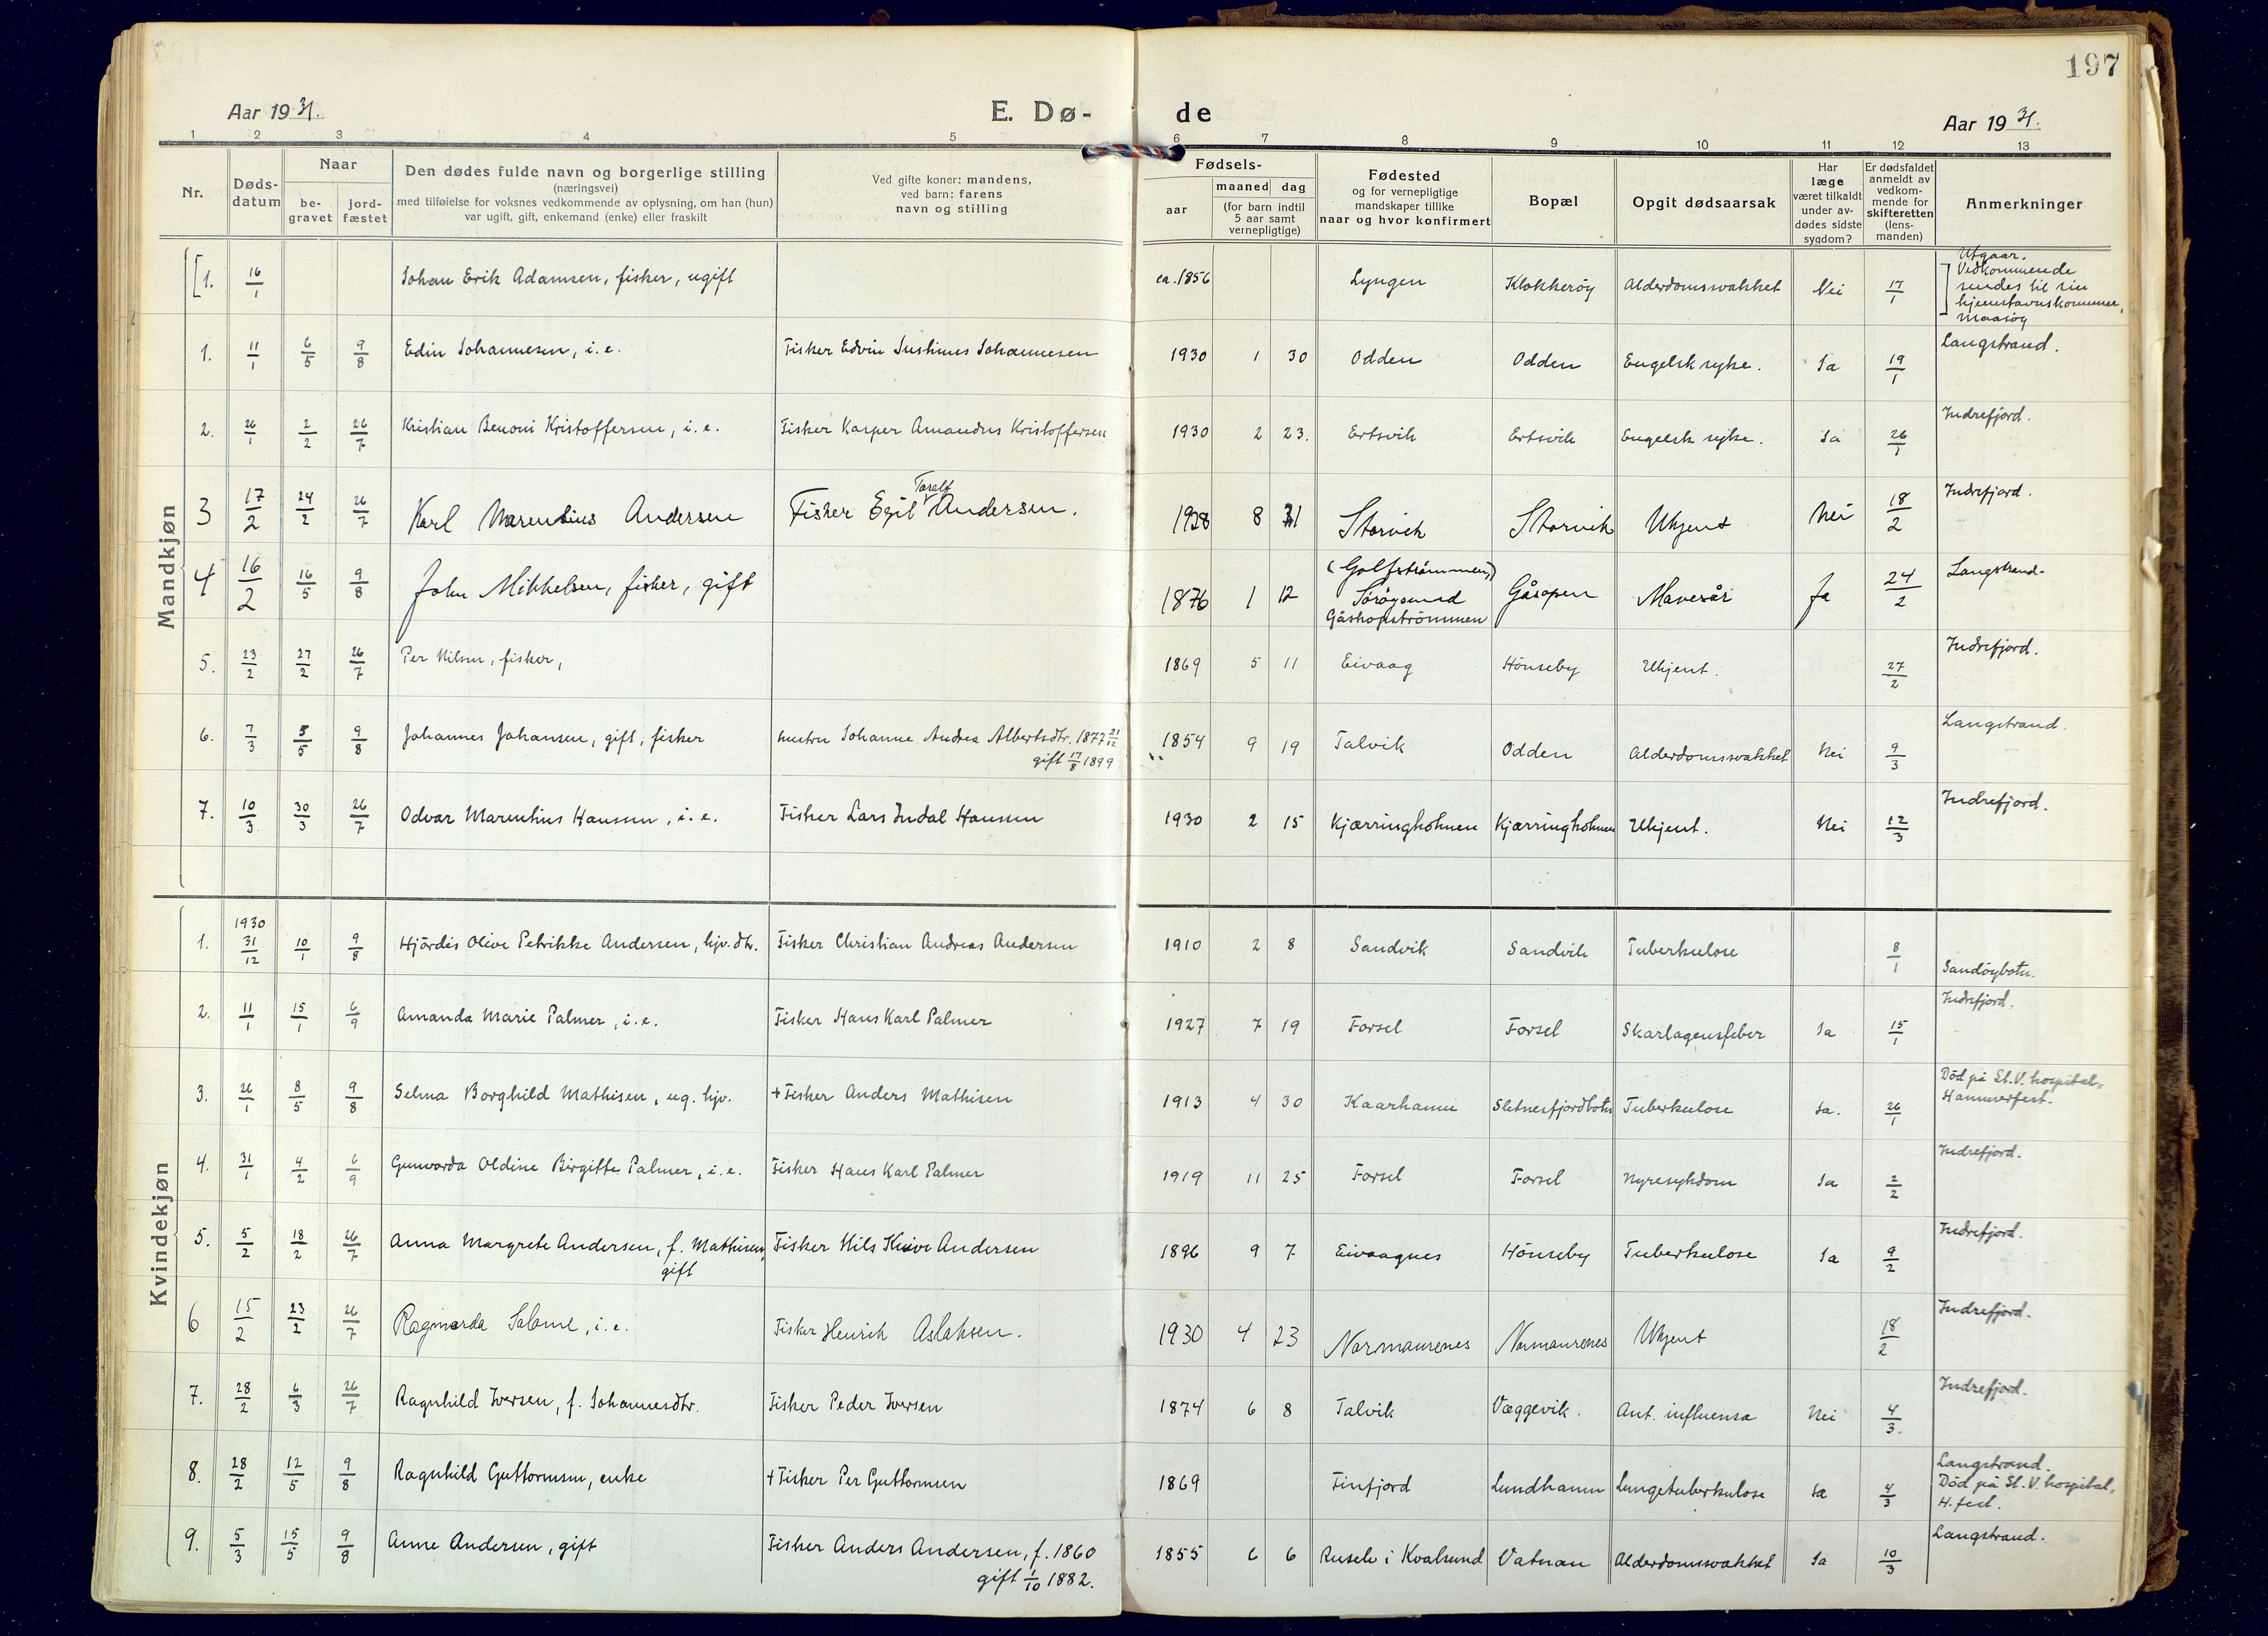 197
Aar 1931.
E. Dø-
de
Aar 1931.
1 2 3 4 5 6 7 8 9 10 11 12 13
Nr.
Døds-
datum
Naar
be-
gravet
jord-
fæstet
Den dødes fulde navn og borgerlige stilling
(næringsvei)
med tilføielse for voksnes vedkommende av oplysning, om han (hun)
var ugift, gift, enkemand (enke) eller fraskilt
Ved gifte koner: mandens,
ved barn: farens
navn og stilling
Fødsels-
aar
maaned dag
(for barn indtil
5 aar samt
vernepligtige)
Fødested
og for vernepligtige
mandskaper tillike
naar og hvor konfirmert
Bopæl
Opgit dødsaarsak
Har
læge
været tilkaldt
under av-
dødes sidste
sygdom?
Er dødsfaldet
anmeldt av
vedkom-
mende for
skifteretten
(lens-
manden)
Anmerkninger
Mandkjøn
[1. 16/1 Johan Erik Adamsen, fisker, ugift ca. 1856 Lyngen Klokkerøy Alderdomssvakhet Nei 17/1
Utgaar.
Vedkommende
sendes til sin
hjemstavnskommune,
Maasøy
1. 11/1 6/5 9/8 Edin Johannesen, i.e. Fisker Edvin Justinus Johannesen 1930 1 30 Odden Odden Engelsk syke. Ja 19/1 Langstrand.
2. 26/1 2/2 26/7 Kristian Benoni Kristoffersen, i.e. Fisker Kasper Amandus Kristoffersen 1930 2 23. Ertsvik Ertsvik Engelsk syke. Ja 26/1 Indrefjord.
3 17/2 24/2 26/7 Karl Marentius Andersen Fisker Egil Toralf Andersen. 1928 8 31 Storvik Storvik Ukjent Nei 18/2 Indrefjord.
4 16/2 16/5 9/8 John Mikkelsen, fisker, gift 1876 1 12 (Golfstrømmen)
Sørøysund
Gåshopstrømmen Gåsopen Mavesår Ja 24/2 Langstrand.
5. 23/2 27/2 26/7 Per Nilsen, fisker, 1869 5 11 Eivaag Hönseby Ukjent. 27/2 Indrefjord.
6. 7/3 5/5 9/8 Johannes Johansen, gift, fisker hustru Johanne Andrea Albertsdtr. 1877 21/12
gift 17/8 1899 1854 9 19 Talvik Odden Alderdomssvakhet Nei 9/3 Langstrand.
7. 10/3 30/3 26/7 Odvar Marentius Hansen, i.e. Fisker Lars Indal Hansen 1930 2 15 Kjærringholmen Kjærringholmen Ukjent. Nei 12/3 Indrefjord.
Kvindekjøn
1. 1930 31/12 10/1 9/8 Hjördis Olive Petrikke Andersen, hjv. dtr. Fisker Christian Andreas Andersen 1910 2 8 Sandvik Sandvik Tuberkulose 8/1 Sandöybotn.
2. 11/1 15/1 6/9 Amanda Marie Palmer, i.e. Fisker Hans Karl Palmer 1927 7 19 Forsel Forsel Skarlagensfeber Ja 15/1 Indrefjord.
3. 26/1 8/5 9/8 Selma Borghild Mathisen, ug. hjv. + Fisker Anders Mathisen 1913 4 30 Kaarhamn Sletnesfjordbotn Tuberkulose Ja. 26/1 Död på St. V. hospital,
Hammerfest.
4. 31/1 4/2 6/9 Gunvorda Oldine Birgitte Palmer, i.e. Fisker Hans Karl Palmer 1919 11 25 Forsel Forsel Nyresykdom Ja 2/2 Indrefjord.
5. 5/2 18/2 26/7 Anna Margrete Andersen, f. Mathisen,
gift Fisker Nils Andersen 1896 9 7 Eivaagnes Hönseby Tuberkulose Ja 9/2 Indrefjord.
6 15/2 23/2 26/7 Ragnvarda Salome, i.e. Fisker Henrik Aslaksen. 1930 4 23 Normaursnes Normaursnes Ukjent 18/2 Indrefjord.
7. 28/2 6/3 26/7 Ragnhild Iversen, f. Johannesdtr. Fisker Peder Iversen 1874 6 8 Talvik Væggevik. Ant. influensa Nei 4/3. Indrefjord.
8. 28/2 12/5 9/8 Ragnhild Guttormsen, enke + Fisker Per Guttormsen 1869 Finfjord Lundhamn Lungetuberkulose Ja 4/3 Langstrand.
Död på St. V. hospital,
H.fest.
9. 5/3 15/5 9/8 Anne Andersen, gift Fisker Anders Andersen, f. 1860
gift 1/10 1882. 1855 6 6 i Kvalsund Vatnan Alderdomssvakhet Ja 10/3 Langstrand.